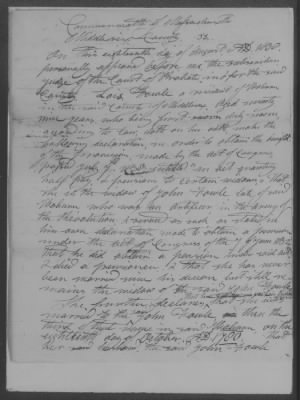 Commonwealth of Massachusetts
Middlesex County ss.
On this eighteenth day of August AD 1830.
personally appeared before me the subscribing
Judge of the Court of Probate, in and for the said
County Lois Fowle a resident of Woburn
in the said County of Middlesex Aged seventy
nine years who being first sworn duly
according to law, doth on his oath make the
following declaration in order to obtain the benefit
of the provision made by the act of Congress
passed July 4 "An act granting
half pay & pensions to certain widows": That
she is the widow of John Fowle late of said
Woburn who was an Artificer in the Army of
the Revolution & served as such as stated in
his own declaration made to obtain a pension
under the act of Congress of the 7th June 1832
that he did obtain a pension under said act
& died a pensioner; that she has never
been married since his decease but still re-
mains the widow of the said John Fowle
She further declares, that she was
married to the said John Fowle
third of that name in said Woburn on the
eighteenth day of October, AD 1780. That
her said husband, the said John Fowle